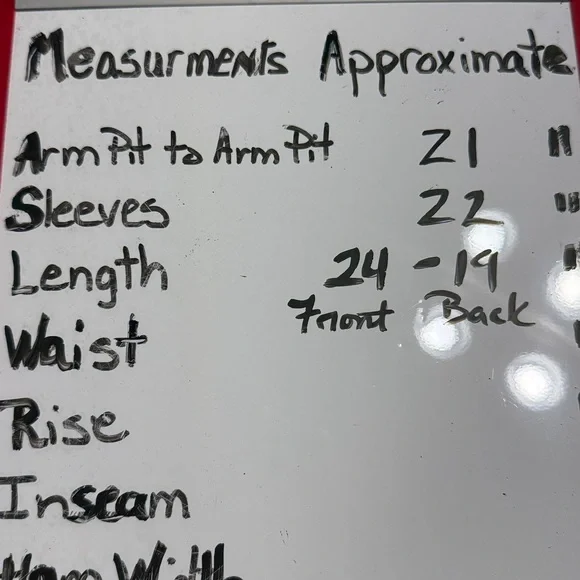 Measurments Approximate
Arm Pit to Arm Pit 21 "
Sleeves 22 "
Length 24 - 19 "
Front Back
Waist
Rise
Inseam
Width